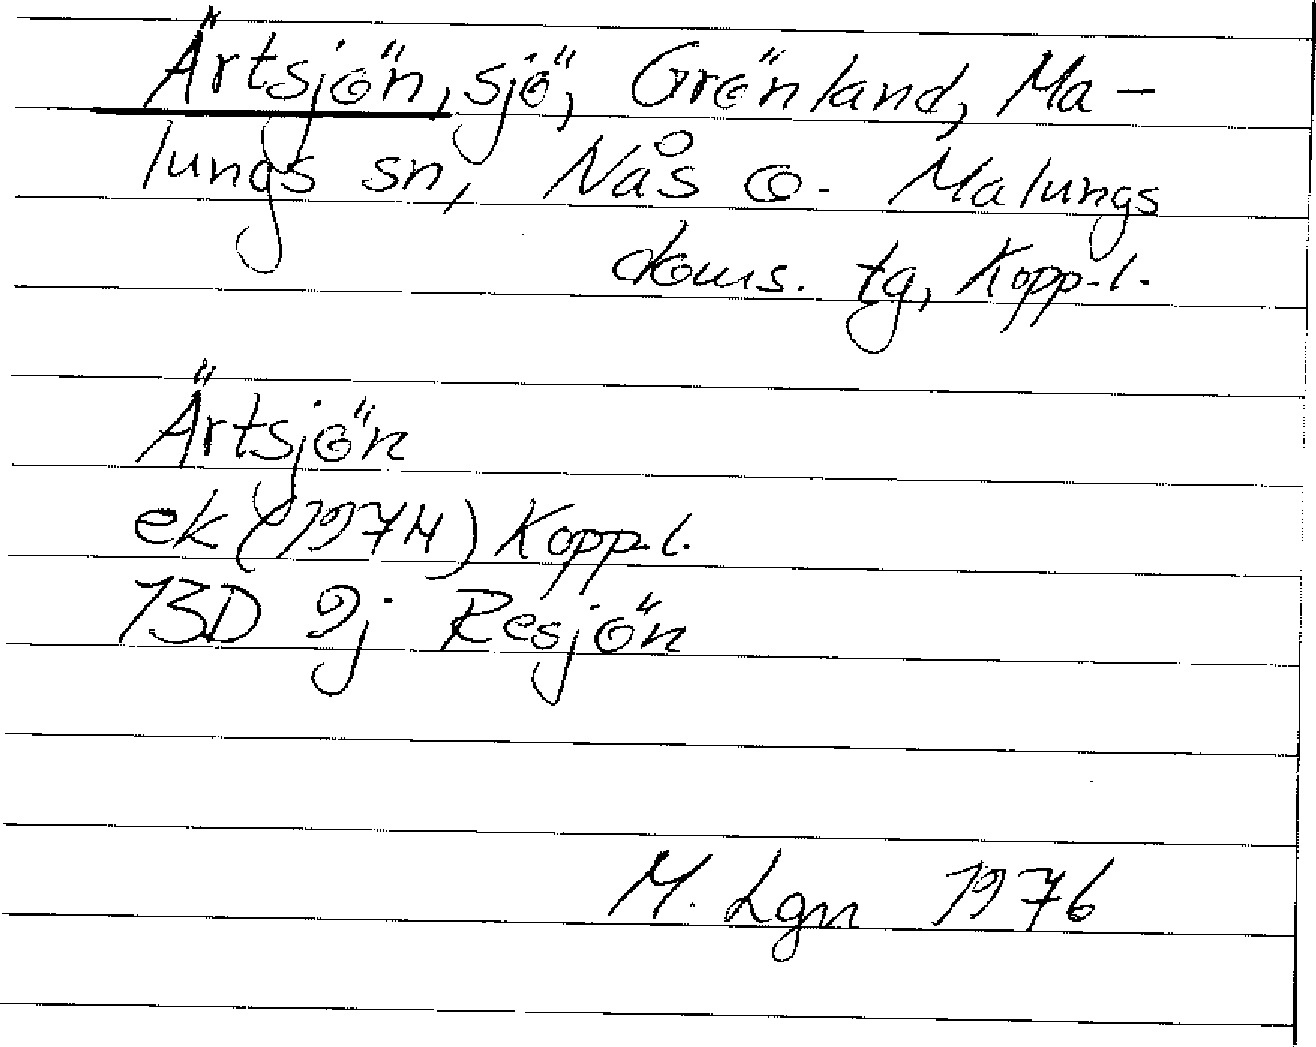 Ärtsjön, sjö, Grönland, Ma-
lungs sn, Nås o. Malungs
doms. tg, Kopp. l.
Ärtsjön
ek (1974) Kopp. l.
13D 9j Resjön
M. Lgn 1976